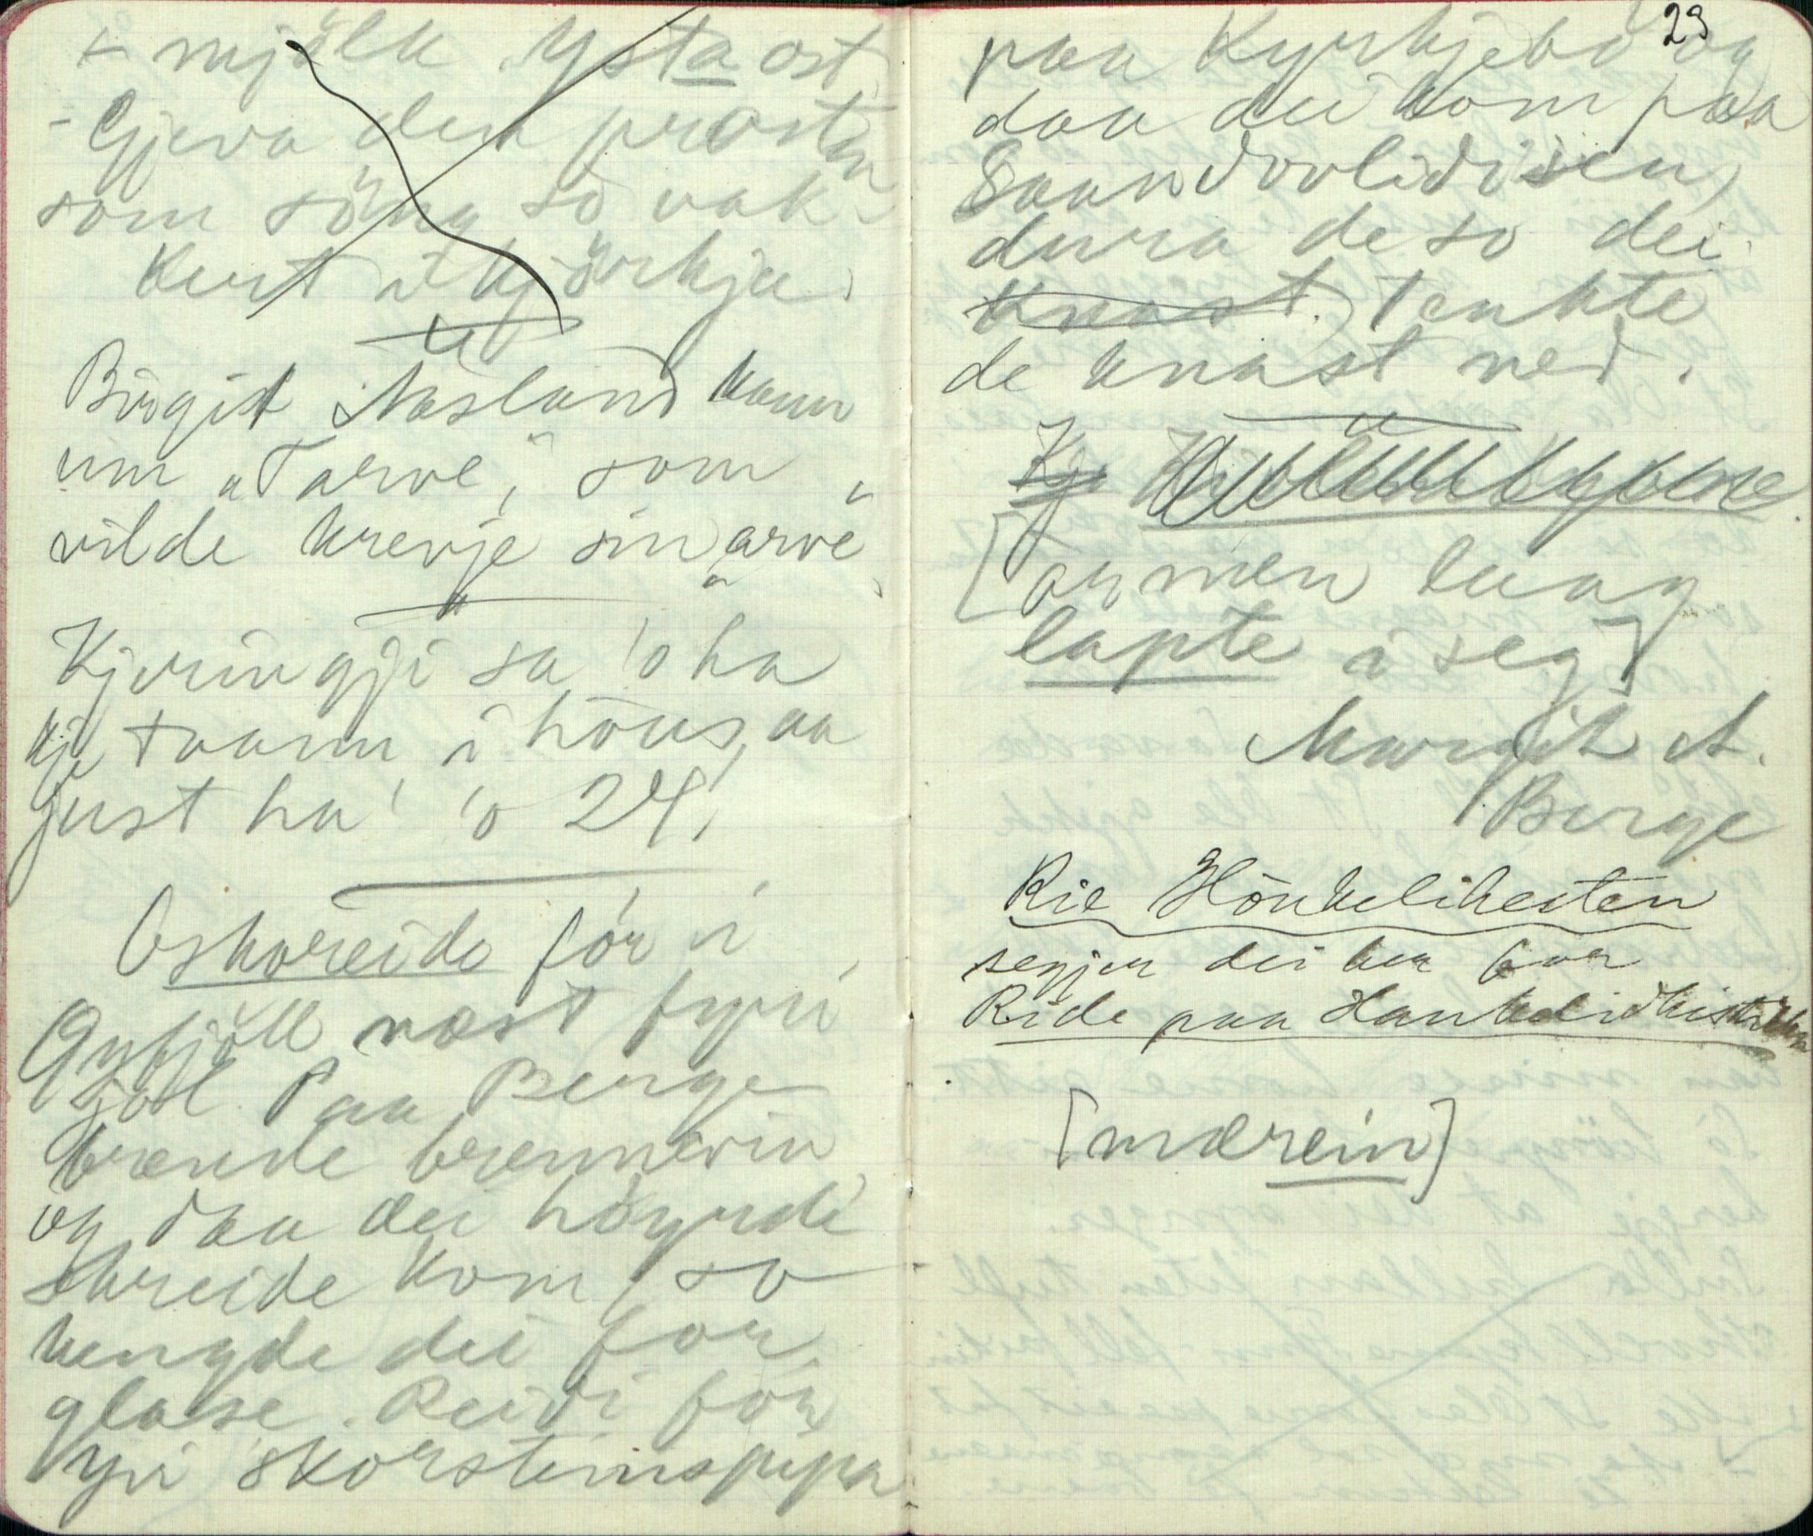 + mjölk ysta ost
- Gjeva den prosten
som söng so vak-
kert i kjörkja.
Birgit Aasland kann
um "Tarve", som
vilde krevje sin "arve"
Kjeringji sa 'o ha
kje taann i höus, aa
just ha' 'o 24!
Oskoreidi fór i
Gufjöll næst fyri
jól. Paa Berge
brende dei brennevin
og daa dei höyrde
skreide kom, so
hengde dei for
glasi. Reidi fór
yvi skorsteinspipa
29
paa Kyrkjebö og
daa dei kom paa
Saandvolidisen,
dura de so dei
knast. tenkte
de knast ned.
Kj
[armen laag
lapte i seg]
Margit A.
Berge
Rie Hönkelihesten
segjer dei her for
Ride paa Hankelidhesten
[mærein]